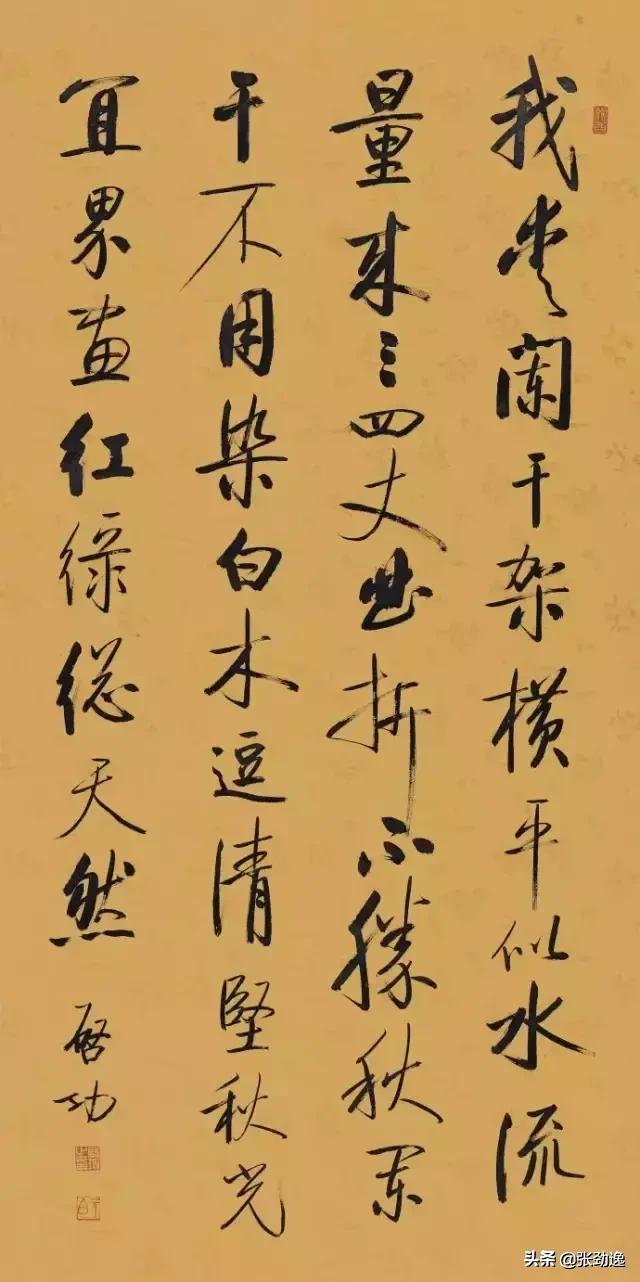 我愛闌干架橫平似水流
量来三四丈曲折不勝秋闌
干不用染白木逗清堅秋光
宜界畫紅綠總天然
啓功
头条 @张劲逸